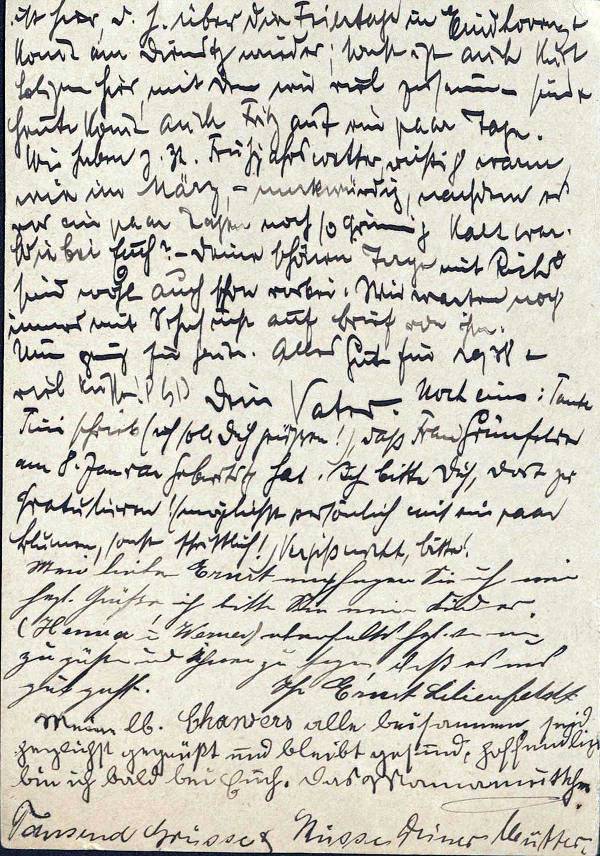 ist hier, d. h. über die Feiertage in Eindhoven,
kommt am Dienstag wieder; sonst ist auch Kurt
hier, mit dem wir viel zusammen sind &
heute kommt auch Fritz auf ein paar Tage.
Wir haben z. Zt. Frühjahrswetter, richtig warm
wie im März, – merkwürdig, nachdem es
vor ein paar Tagen noch so grimmig kalt war.
Wie bei Euch? – Deine schönen Tage mit
sind wohl auch schon vorbei. Wir warten noch
immer mit Sehnsucht auf Brief von ihr.
Nun genug für heute. Alles Gute für 1938 –
viel Küsse! Dein Vater. Noch eins: Tante
schrieb (ich soll Dich grüßen!), daß Frau Grünfelder
am 8. Januar Geburtstag hat. Ich bitte Dich, dort zu
gratulieren! (möglichst persönlich mit ein paar
Blumen, sonst schriftlich!) Vergiß nicht, bitte!
Mein lieber Ernst empfangen Sie
herzl. Grüße ich bitte
(Henna & Werner) ebenfalls
zu grüßen und Ihnen zu sagen, daß es uns
gut geht. Ihr Ernst Lilienfeldt
Meine lb. Chawers alle beisammen, seid
herzlichst gegrüßt und bleibt gesund, hoffendlich
bin ich bald bei Euch. Das Mamamuttchen
Tausend Grüsse & Küsse Deiner Mutter.